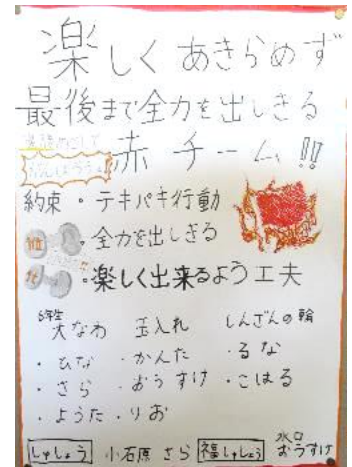 楽しくあきらめず
最後まで全力を出しきる
赤チーム!!
約束・テキパキ行動
・全力を出しきる
・楽しく出来るよう工夫
6年生
大なわ 玉入れ しんざんの輪
・ひな ・かんた ・るな
・さら ・おうすけ ・こはる
・ようた ・りお
しゅしょう 小石原 さら 福しゅしょう 水口 おうすけ